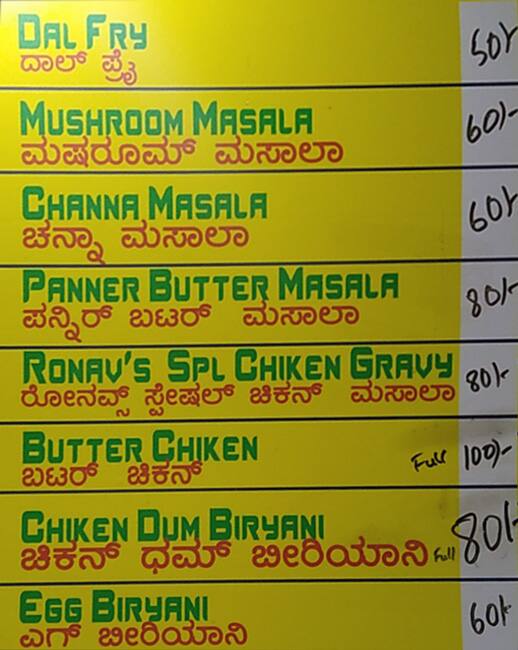 DAL FRY 50/-
ದಾಲ್ ಫ್ರೈ
MUSHROOM MASALA 60/-
ಮಷರೂಮ್ ಮಸಾಲಾ
CHANNA MASALA 60/-
ಚನ್ನಾ ಮಸಾಲಾ
PANNER BUTTER MASALA 80/-
ಪನ್ನಿರ್ ಬಟರ್ ಮಸಾಲಾ
RONAV'S SPL CHIKEN GRAVY 80/-
ರೋನವ್ಸ್ ಸ್ಪೇಷಲ್ ಚಿಕನ್ ಮಸಾಲಾ
BUTTER CHIKEN Full 100/-
ಬಟರ್ ಚಿಕನ್
CHIKEN DUM BIRYANI 80/-
ಚಿಕನ್ ಧಮ್ ಬೀರಿಯಾನಿ Full
EGG BIRYANI 60/-
ಎಗ್ ಬೀರಿಯಾನಿ